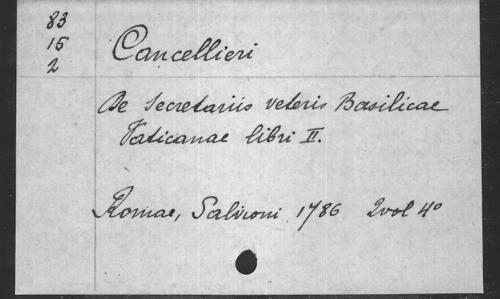 83
15
2
Cancellieri
De Secretariis veteris Basilicae
Vaticanae libri II.
Romae, Salvioni 1786 2vol 4°